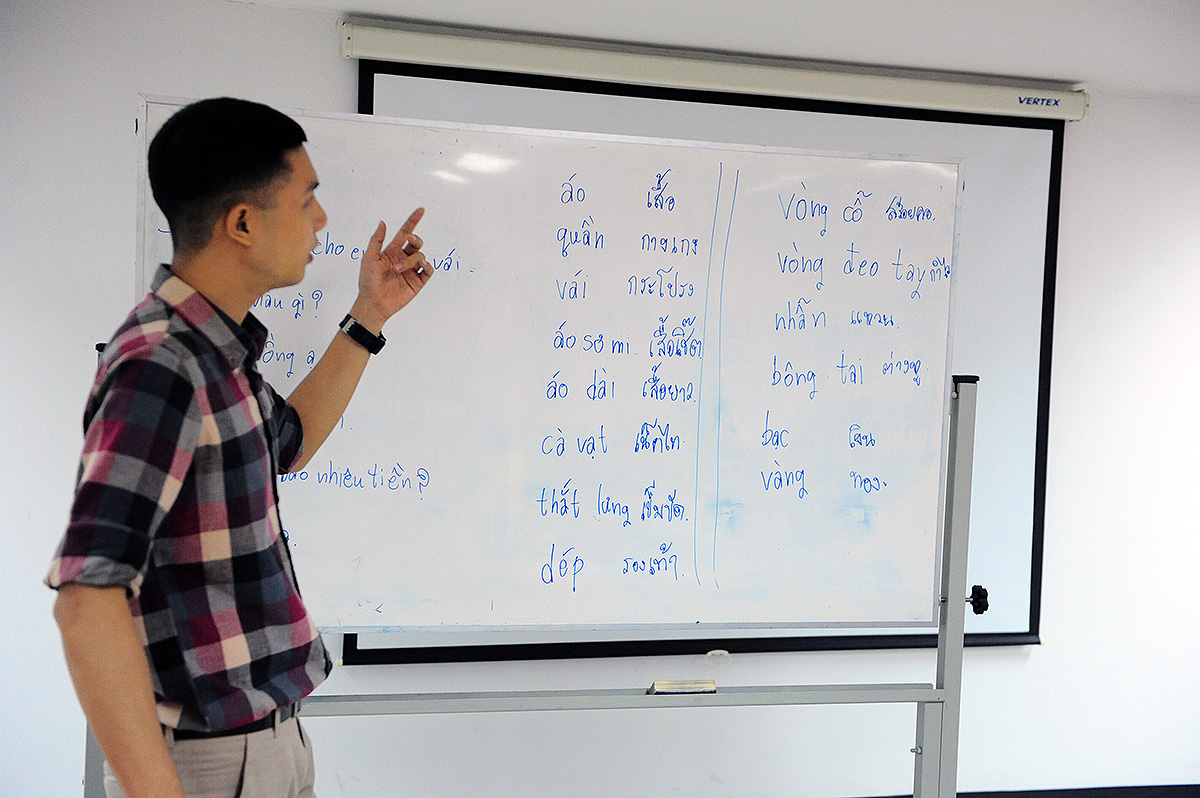 VERTEX
cho e vái.
màu gì?
ồng ạ
bao nhiêu tiền?
áo เสื้อ
quần กางเกง
vái กระโปรง
áo sơ mi เสื้อเชิ๊ต
áo dài เสื้อยาว.
cà vạt เน็คไท
thắt lưng เข็มขัด.
dép รองเท้า.
vòng cổ สร้อยคอ.
vòng đeo tay กำไล
nhẫn แหวน.
bông tai ต่างหู.
bạc เงิน
vàng ทอง.